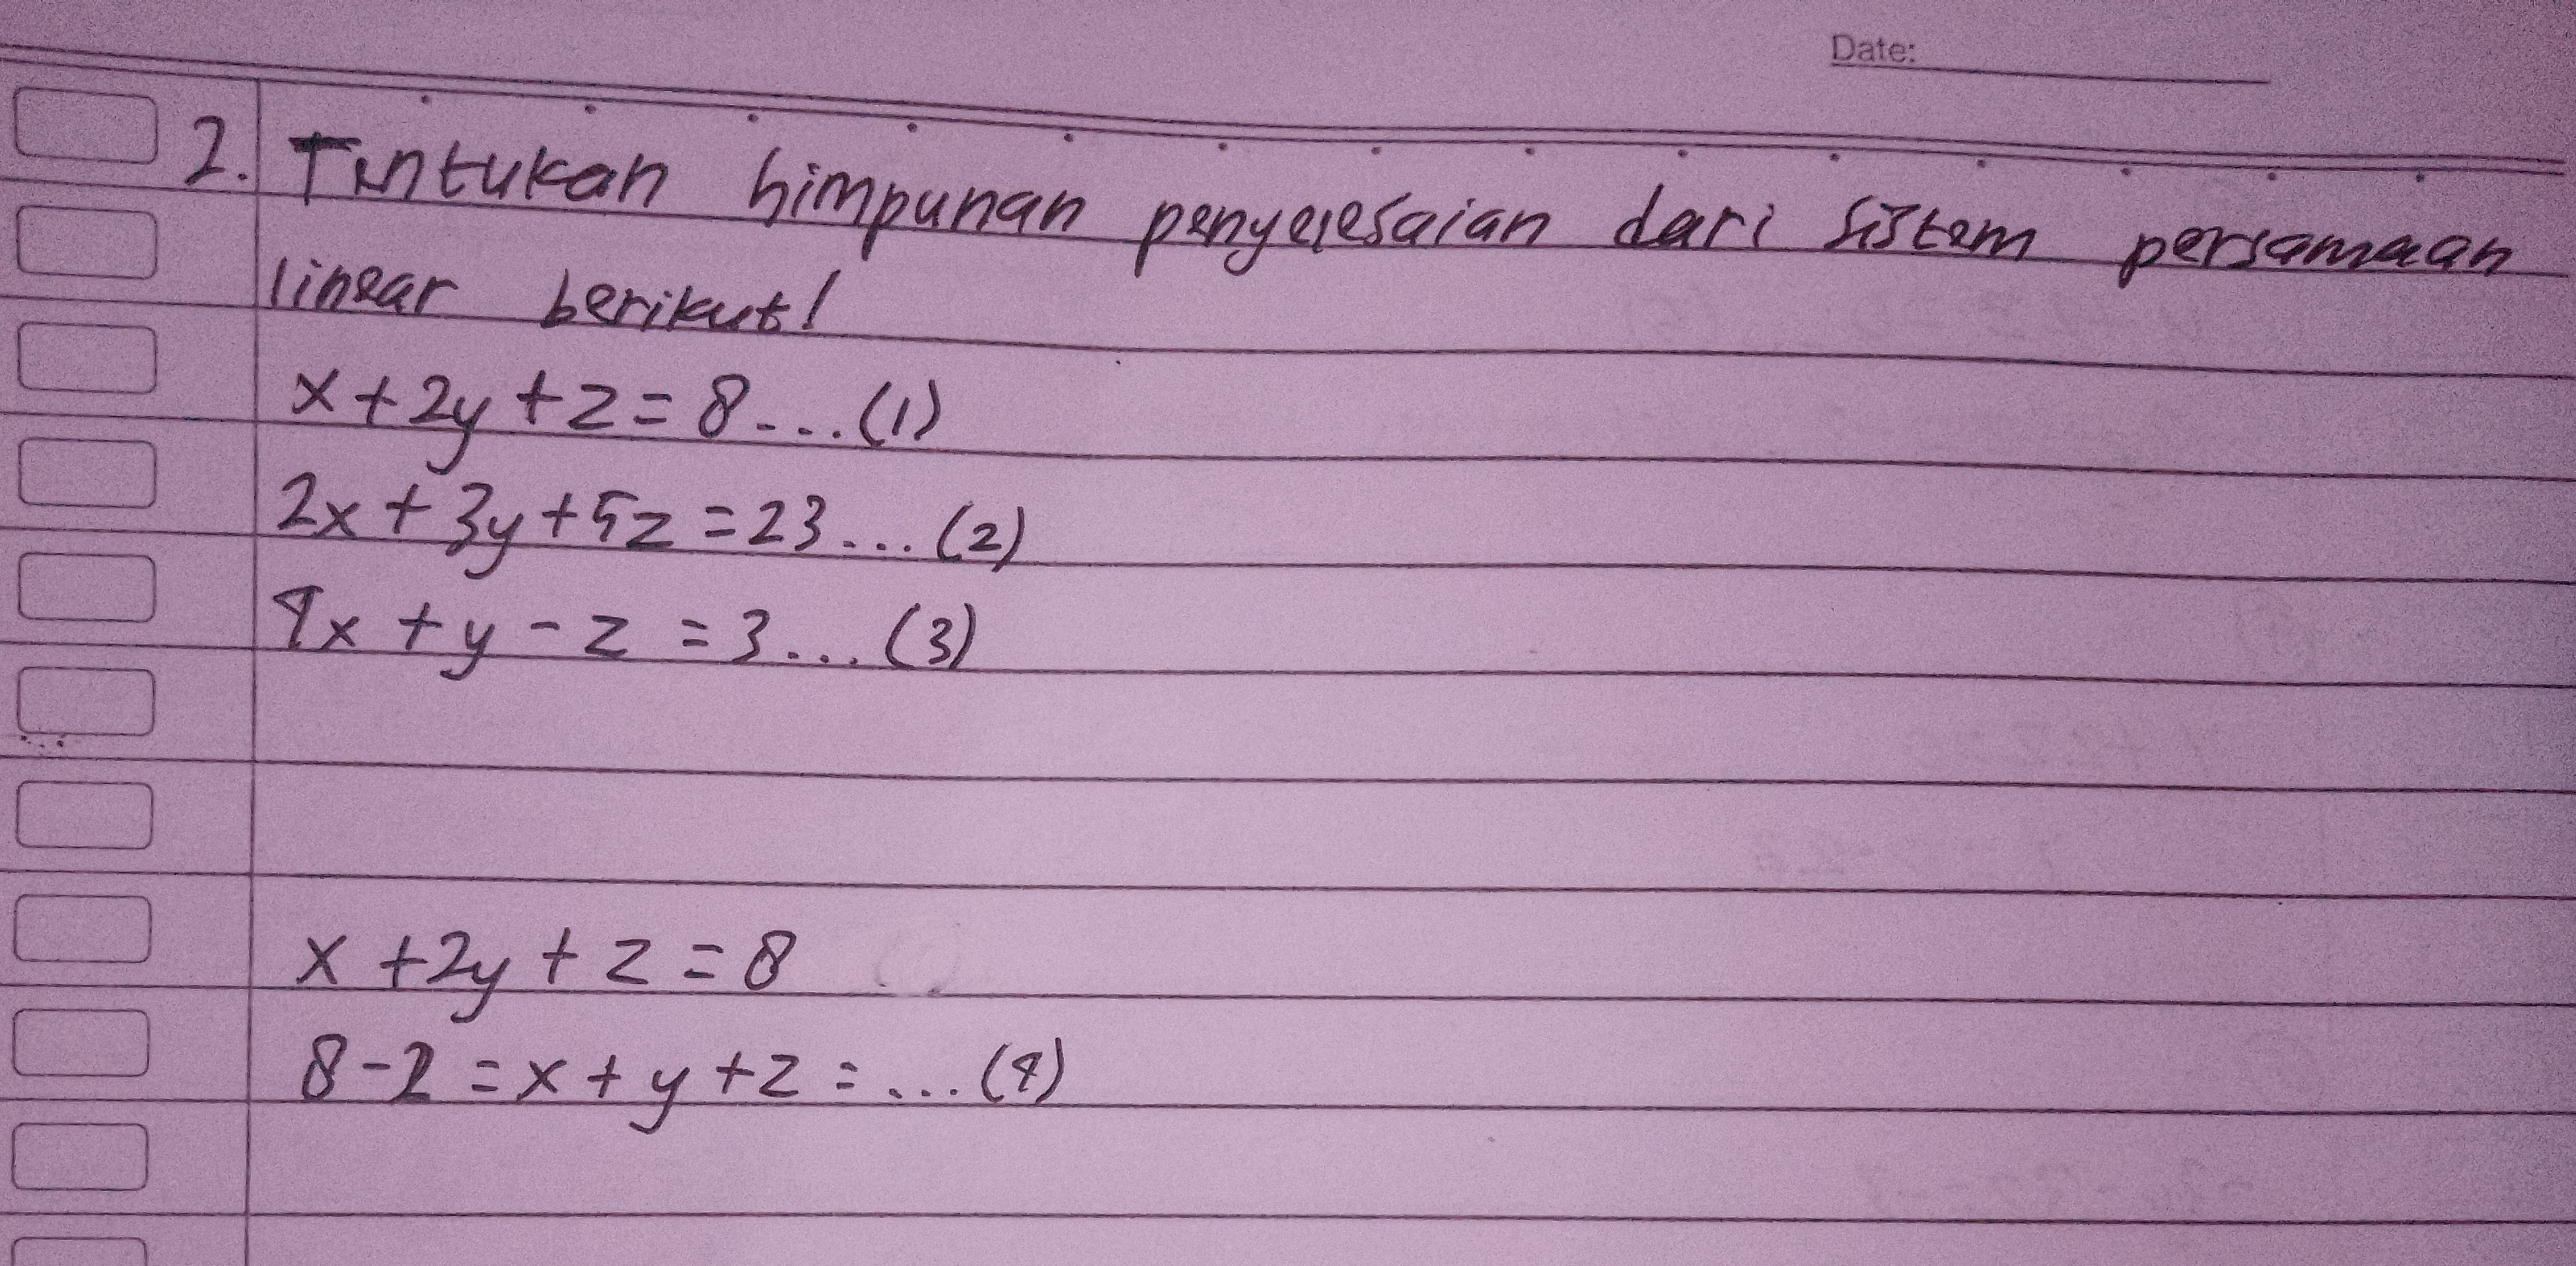 Date:
2. Tentukan himpunan penyelesaian dari sistem persamaan
linear berikut!
x + 2y + z = 8 ... (1)
2x + 3y + 5z = 23 ... (2)
4x + y - z = 3 ... (3)
x + 2y + z = 8
8 - 2 = x + y + z = ... (4)